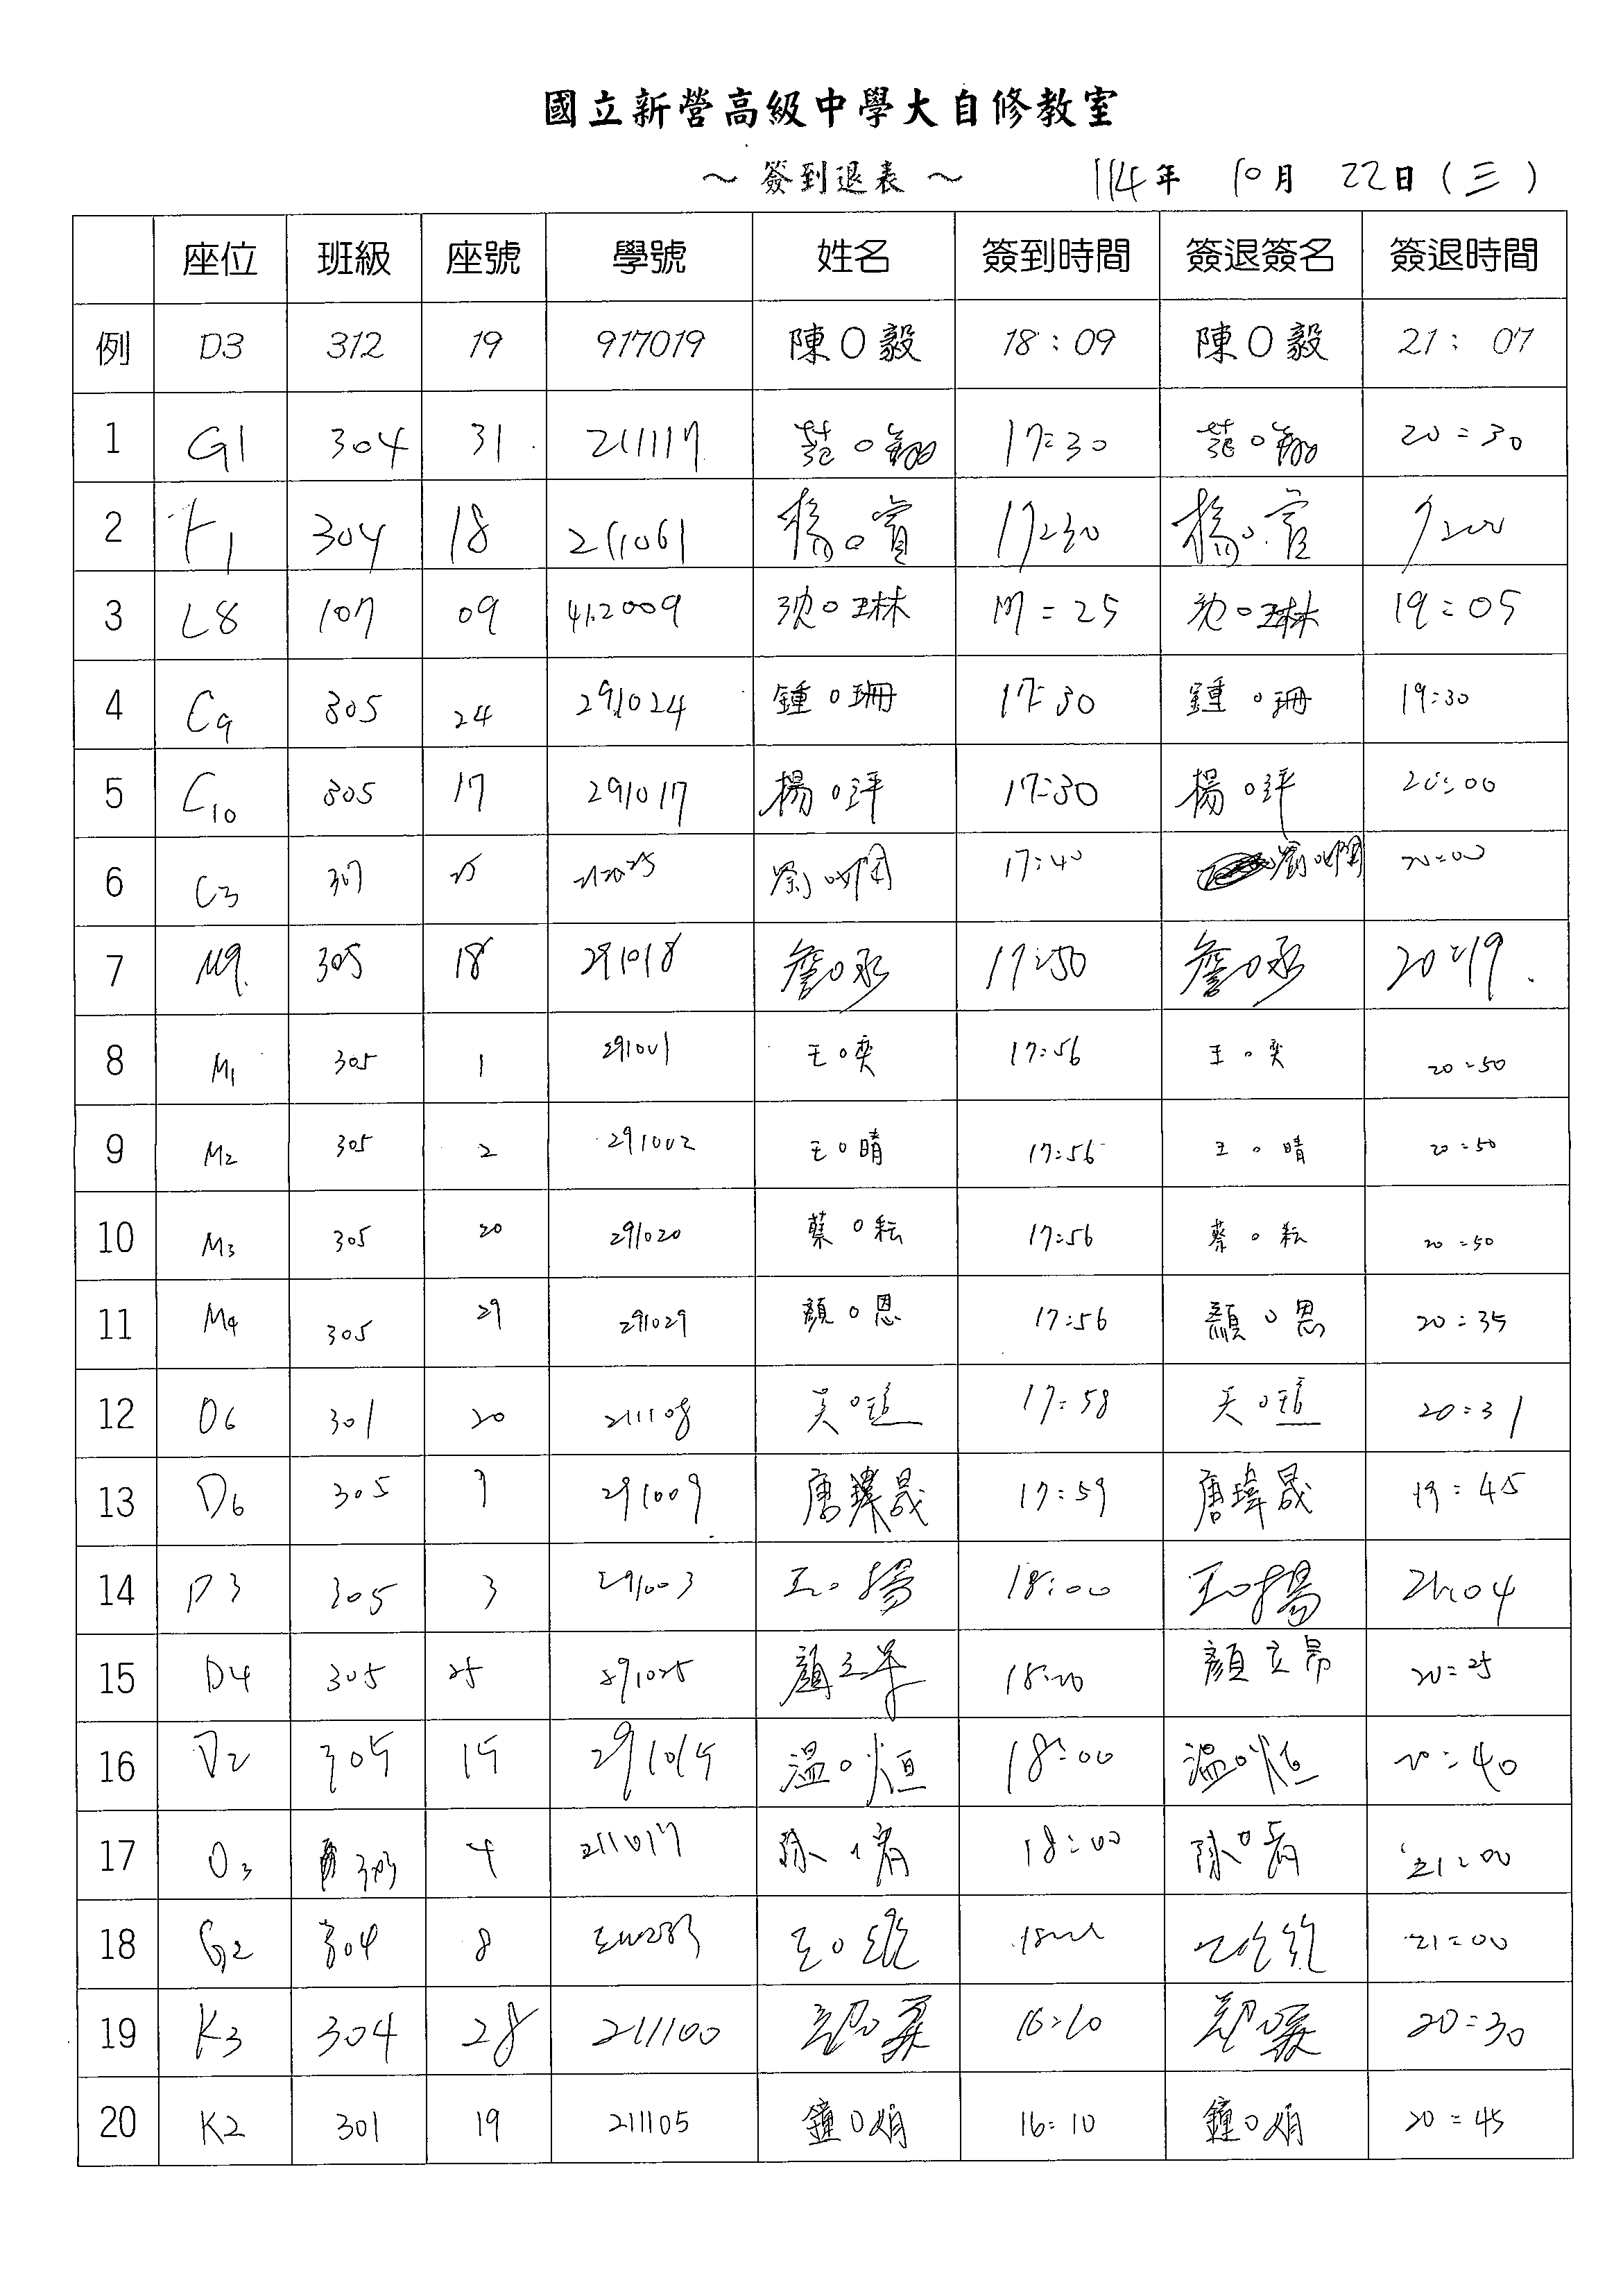 國立新營高級中學大自修教室
～ 簽到退表 ～ 114年 10月 22日(三)
座位 班級 座號 學號 姓名 簽到時間 簽退簽名 簽退時間
例 D3 312 19 917019 陳O毅 18:09 陳O毅 21:07
1 G1 304 31 211117 范O 17:30 范O 20:30
2 F1 304 18 211061 楊O 17:30 楊O
3 L8 107 09 412009 沈O琳 17:25 沈O琳 19:05
4 C9 305 24 291024 鍾O珊 17:30 鍾O珊 19:30
5 C10 305 17 291017 楊O評 17:30 楊O評 20:00
6 C3 307 25 劉O嫻 17:40 劉O嫻 20:00
7 M9 305 18 291018 詹O丞 17:50 詹O丞 20:19
8 M1 305 1 291001 王O奕 17:56 王O奕 20:50
9 M2 305 2 291002 王O晴 17:56 王O晴 20:50
10 M3 305 20 291020 蔡O耘 17:56 蔡O耘 20:50
11 M4 305 29 291029 顏O恩 17:56 顏O恩 20:35
12 O6 301 20 211108 吳O 17:58 吳O 20:31
13 D6 305 9 291009 唐瑋晟 17:59 唐瑋晟 19:45
14 D3 305 3 291003 王O揚 18:00 王O揚 21:04
15 D4 305 25 291025 顏立昂 18:00 顏立昂 20:25
16 D2 305 15 291015 溫O恒 18:00 溫O恒 20:40
17 O3 303 4 211017 陳O 18:00 陳O 21:00
18 G2 304 8 王O 21:00
19 K3 304 28 211100 鄭O 16:10 鄭O 20:30
20 K2 301 19 211105 鐘O娟 16:10 鐘O娟 20:45